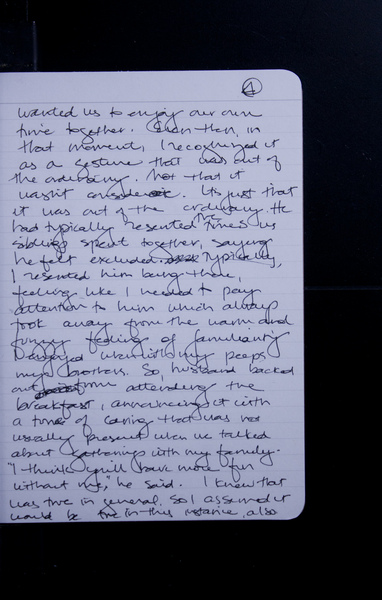 4
wanted us to enjoy our own
time together. Even then, in
that moment, I recognized it
as a gesture that was out of
the ordinary. Not that it
wasn't considerate. Its just that
it was out of the ordinary. He
had typically resented the times us
siblings spent together, saying
he felt excluded. Typically,
I resented him being there,
feeling like I needed to pay
attention to him which always
took away from the warm and
funny feeling of familiarity
I enjoyed when with my peeps
my brothers. So, husband backed
out from attending the
breakfast, announcing it with
a tone of caring that was not
usually present when we talked
about gatherings with my family.
"I think you'll have more fun
without me," he said. I knew that
was true in general. So I assumed it
would be true in this instance, also